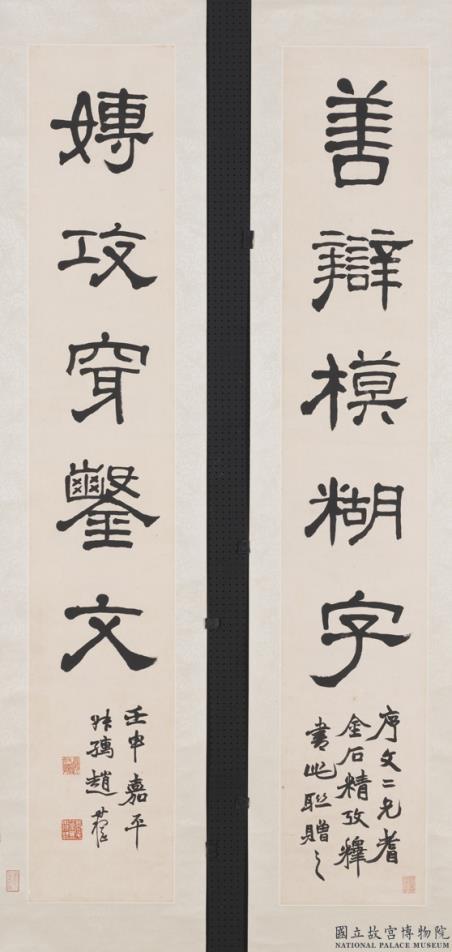 善辯模糊字
序文二兄耆
金石精攷釋
書此聯贈之
嫥攻穿鑿文
壬申嘉平
叔孺趙
國立故宮博物院
NATIONAL PALACE MUSEUM